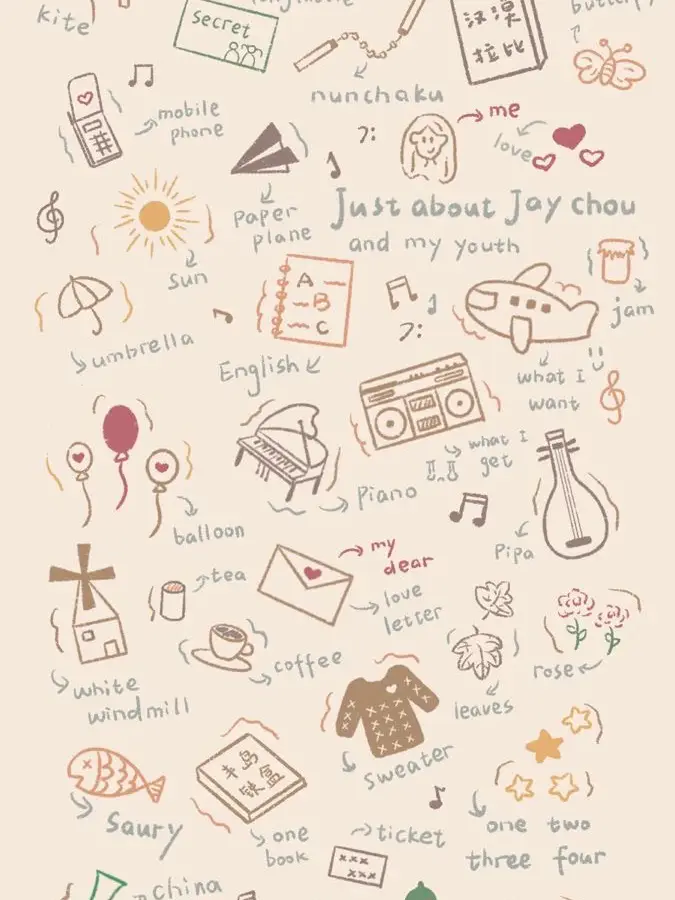 kite
secret
汉谟
拉比
nunchaku
mobile
phone
me
love
paper
plane
Just about Jay chou
and my youth
sun
jam
A
B
C
umbrella
English
what I
want
what I
get
Piano
balloon
Pipa
tea
my
dear
love
letter
coffee
rose
white
windmill
leaves
sweater
半岛
铁盒
saury
one
book
ticket
one two
three four
china